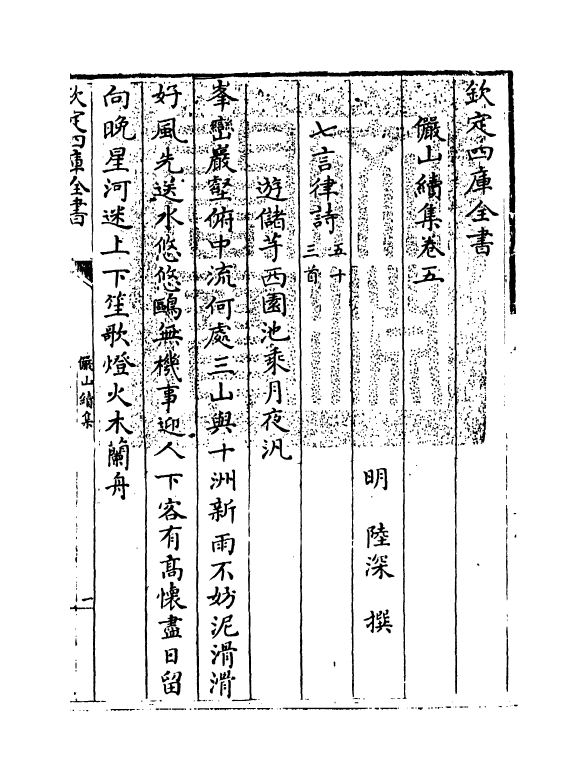 欽定四庫全書
儼山續集卷五
明 陸深 撰
七言律詩五十三首
遊儲芋西園池乘月夜汎
峯巒巖壑俯中流何處三山與十洲新雨不妨泥滑滑
好風先送水悠悠鷗無機事迎人下客有高懷盡日留
向晚星河迷上下笙歌燈火木蘭舟
欽定四庫全書
儼山續集
一